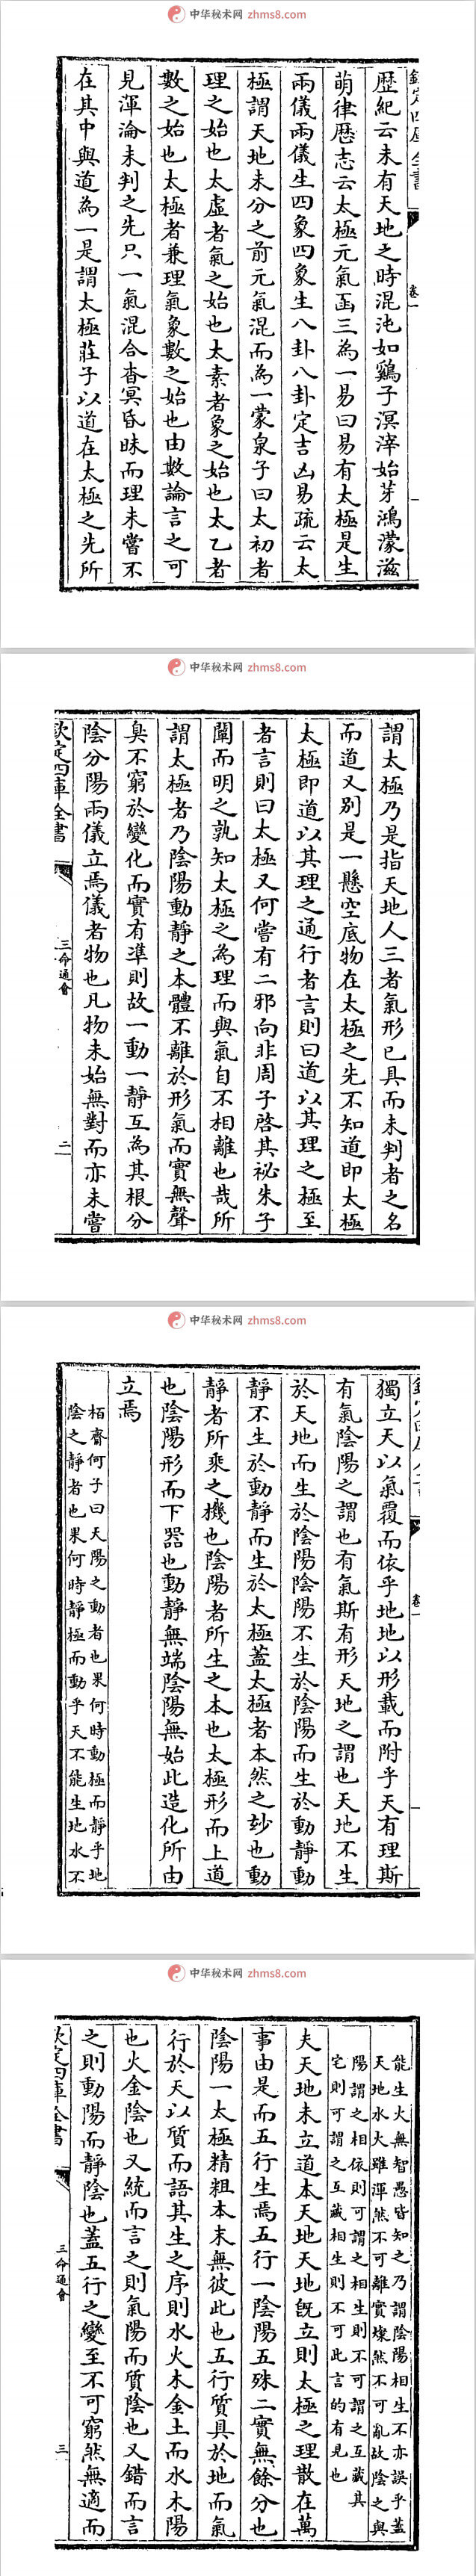 中华秘术网 zhms8.com
欽定四庫全書
卷一
歴紀云未有天地之時混沌如鷄子溟涬始芽鴻濛滋
萌律厯志云太極元氣函三為一易曰易有太極是生
兩儀兩儀生四象四象生八卦八卦定吉凶易疏云太
極謂天地未分之前元氣混而為一蒙泉子曰太初者
理之始也太虛者氣之始也太素者象之始也太乙者
數之始也太極者兼理氣象數之始也由數論言之可
見渾淪未判之先只一氣混合杳冥昏昧而理未嘗不
在其中與道為一是謂太極莊子以道在太極之先所
中华秘术网 zhms8.com
謂太極乃是指天地人三者氣形已具而未判者之名
而道又别是一懸空底物在太極之先不知道即太極
太極即道以其理之通行者言則曰道以其理之極至
者言則曰太極又何嘗有二邪向非周子啓其祕朱子
闡而明之孰知太極之為理而與氣自不相離也哉所
謂太極者乃陰陽動靜之本體不離於形氣而實無聲
臭不窮於變化而實有準則故一動一靜互為其根分
陰分陽兩儀立焉儀者物也凡物未始無對而亦未嘗
欽定四庫全書
三命通會
二
中华秘术网 zhms8.com
欽定四庫全書
卷一
獨立天以氣覆而依乎地地以形載而附乎天有理斯
有氣陰陽之謂也有氣斯有形天地之謂也天地不生
於天地而生於陰陽陰陽不生於陰陽而生於動靜動
靜不生於動靜而生於太極蓋太極者本然之妙也動
靜者所乘之機也陰陽者所生之本也太極形而上道
也陰陽形而下器也動靜無端陰陽無始此造化所由
立焉
栢齋何子曰天陽之動者也果何時動極而靜乎地
陰之靜者也果何時靜極而動乎天不能生地水不
中华秘术网 zhms8.com
能生火無智愚皆知之乃謂陰陽相生不亦誤乎蓋
天地水火雖渾然不可離實燦然不可亂故陰之與
陽謂之相依則可謂之相生則不可謂之互藏其
宅則可謂之互藏相生則不可此言的有見也
夫天地未立道本天地天地旣立則太極之理散在萬
事由是而五行生焉五行一陰陽五殊二實無餘分也
陰陽一太極精粗本末無彼此也五行質具於地而氣
行於天以質而語其生之序則水火木金土而水木陽
也火金陰也又統而言之則氣陽而質陰也又錯而言
之則動陽而靜陰也蓋五行之變至不可窮然無適而
欽定四庫全書
三命通會
三